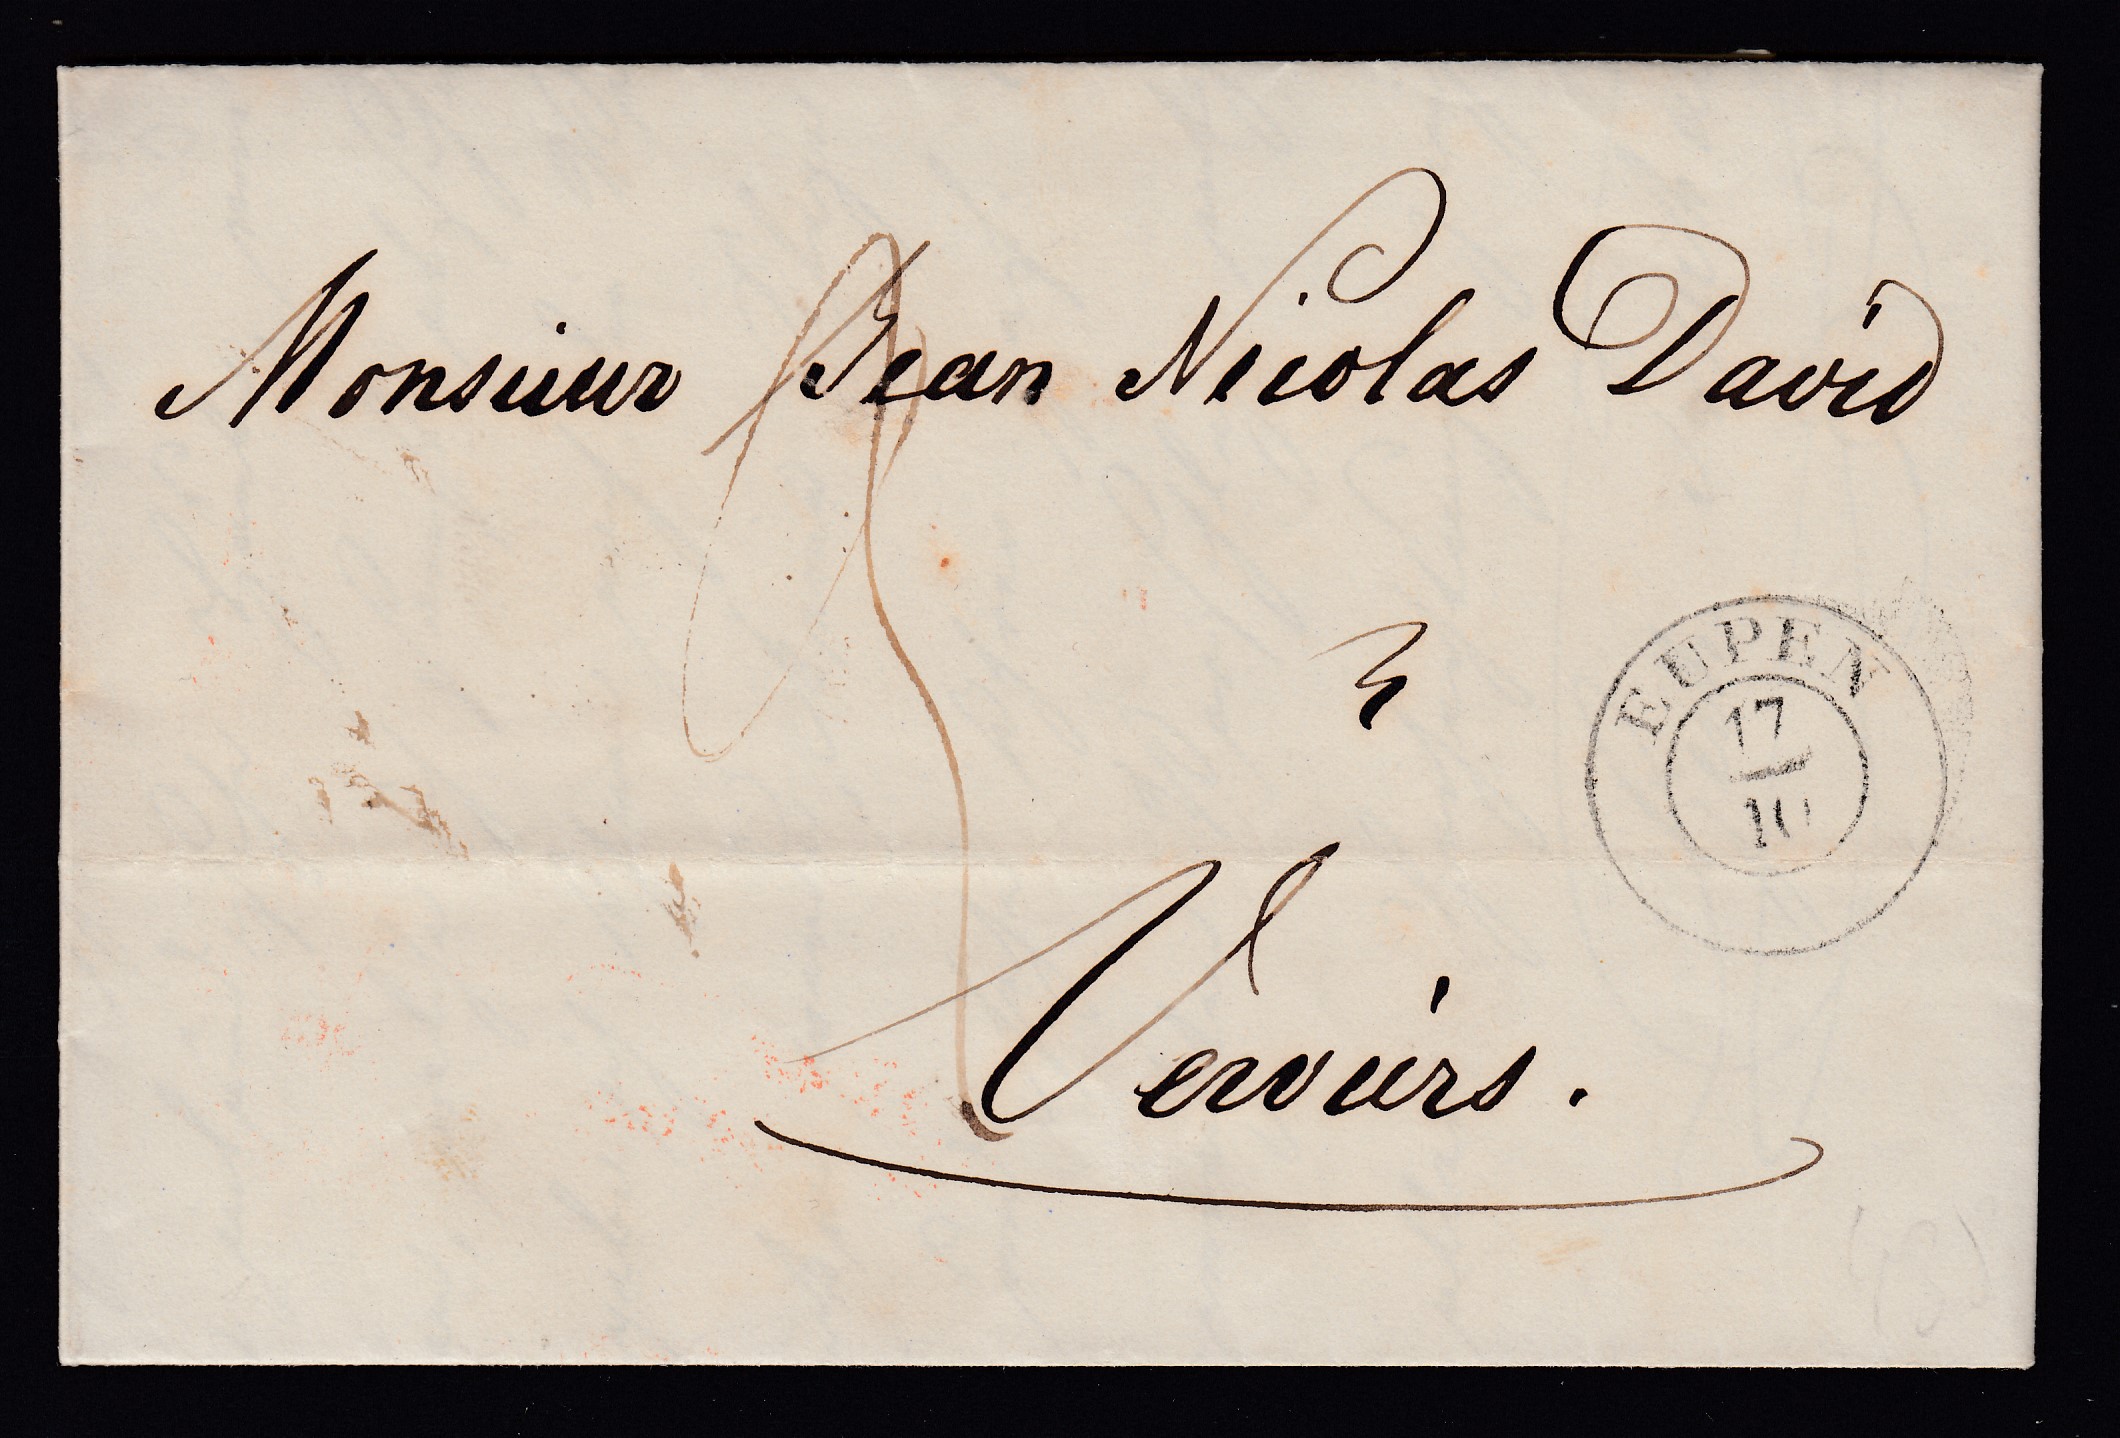 Monsieur Jean Nicolas David
EUPEN
17
10
Verviers.